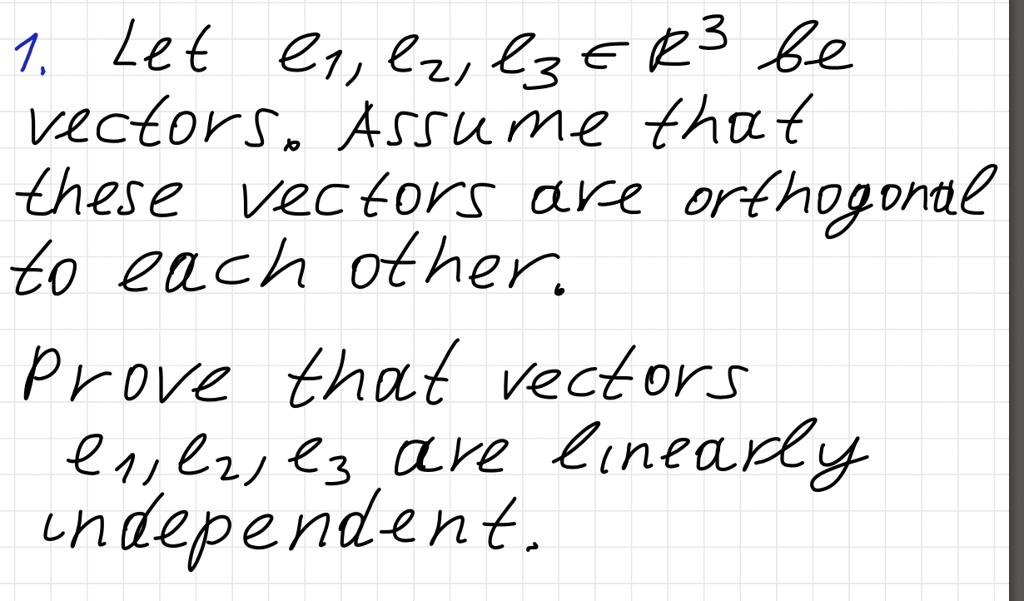 1. Let e1, e2, e3 ∈ R³ be
vectors. Assume that
these vectors are orthogonal
to each other.
Prove that vectors
e1, e2, e3 are linearly
independent.